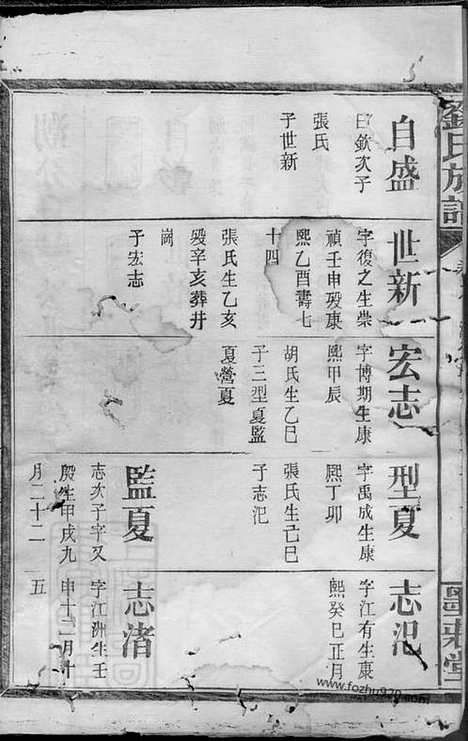 劉氏族譜
墨莊堂
自盛
曰欽次子
張氏
子世新
世新
字復之生崇
禎壬申歿康
熙乙酉壽七
十四
張氏生乙亥
歿辛亥葬井
崗
子宏志
宏志
字博期生康
熙甲辰
胡氏生乙巳
子三型夏監
夏營夏
型夏
字禹成生康
熙丁卯
張氏生己巳
子志汜
監夏
志次子字又
殷生甲戌九
月二十二
志汜
字江有生康
熙癸巳正月
志渚
字江洲生壬
申十二月十
五
www.fozhu920.com